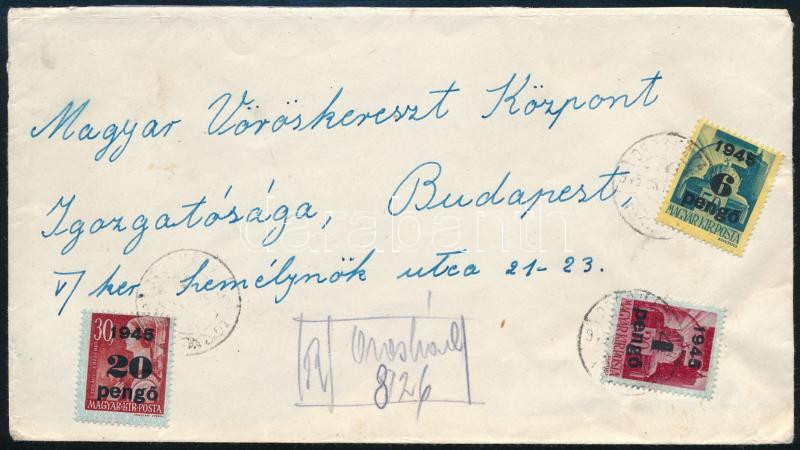 Magyar Vöröskereszt Központ
Igazgatósága, Budapest,
V/ker. Személynök utca 21-23.
1945
6
pengő
50
MAGYAR·KIR·POSTA
1945
1
pengő
MAGYAR·KIR·POSTA
30
1945
20
pengő
MAGYAR·KIR·POSTA
R
8/26
darabanth